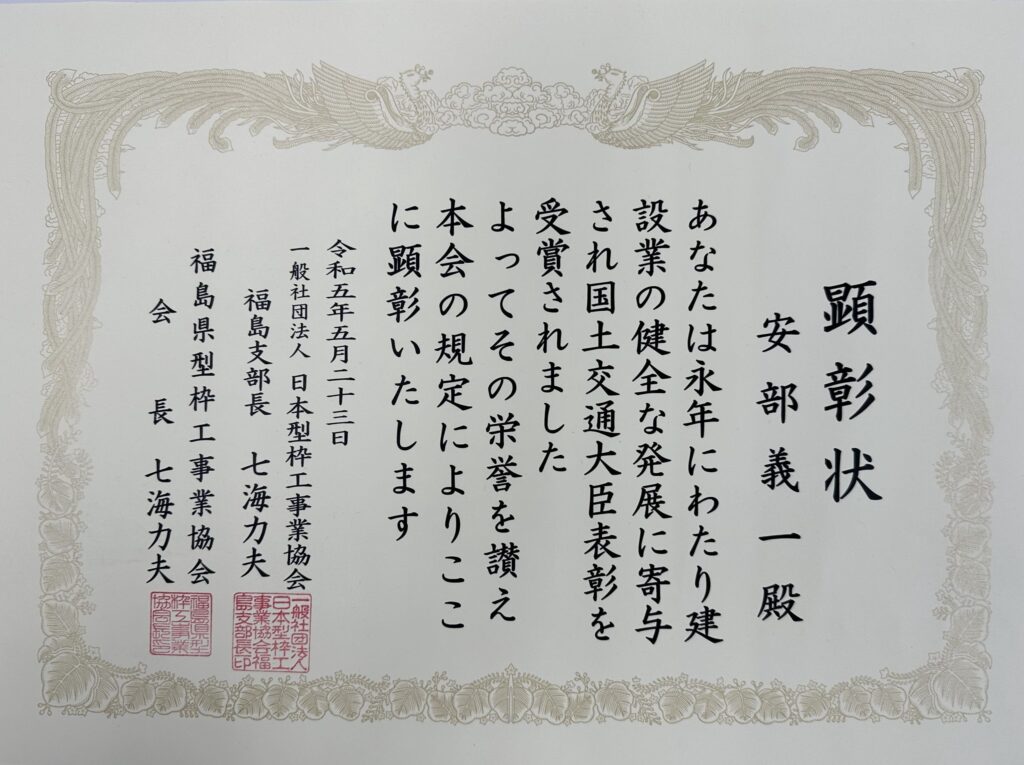 顕彰状
安部義一殿
あなたは永年にわたり建
設業の健全な発展に寄与
され国土交通大臣表彰を
受賞されました
よってその栄誉を讃え
本会の規定によりここ
に顕彰いたします
令和五年五月二十三日
一般社団法人 日本型枠工事業協会
福島支部長 七海力夫
一般社団法人
日本型枠工
事業協会福
島支部長印
福島県型枠工事業協会
会長 七海力夫
福島県型
枠工事業
協会長印